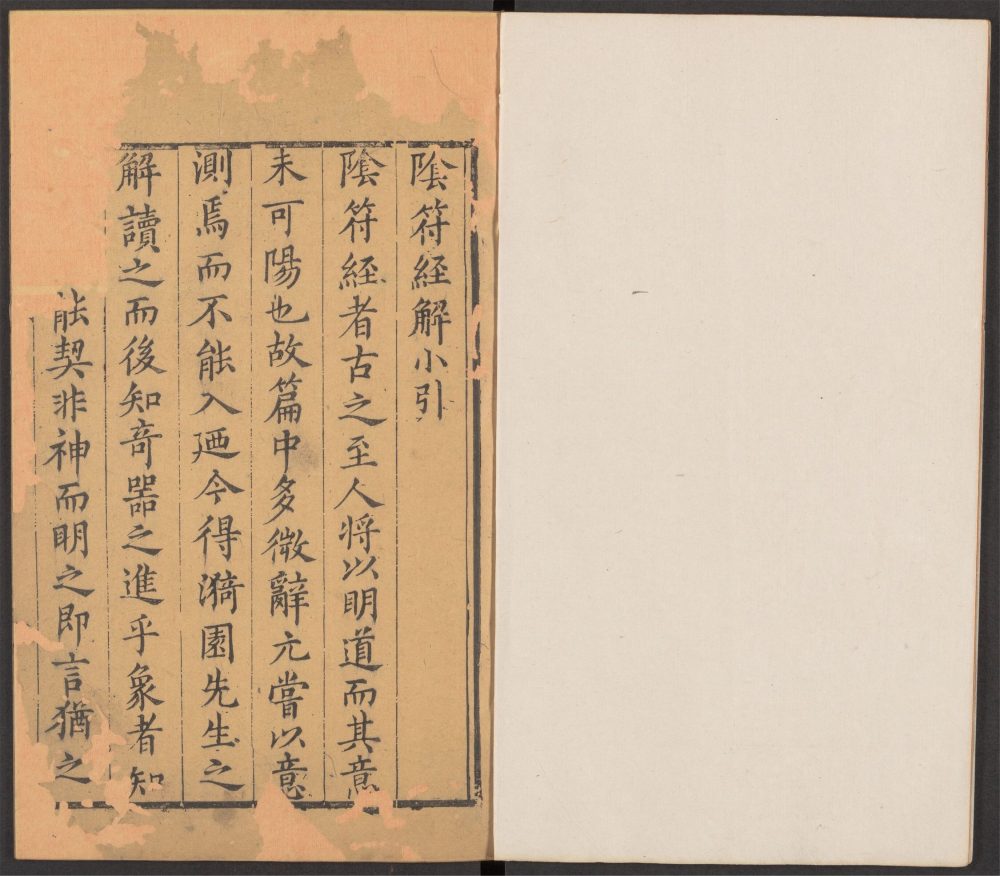 陰符經解小引
陰符經者古之至人將以明道而其意
未可陽也故篇中多微辭元嘗以意
測焉而不能入廼今得漪園先生之
解讀之而後知奇器之進乎象者知
能契非神而明之即言猶之